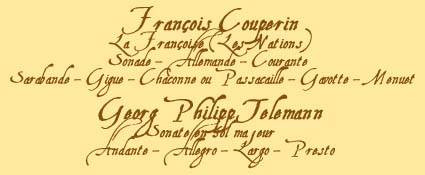 François Couperin
La Françoise (Les Nations)
Sonade - Allemande - Courante
Sarabande - Gigue - Chaconne ou Passacaille - Gavotte - Menuet
Georg Philipp Telemann
Sonate en sol majeur
Andante - Allegro - Largo - Presto